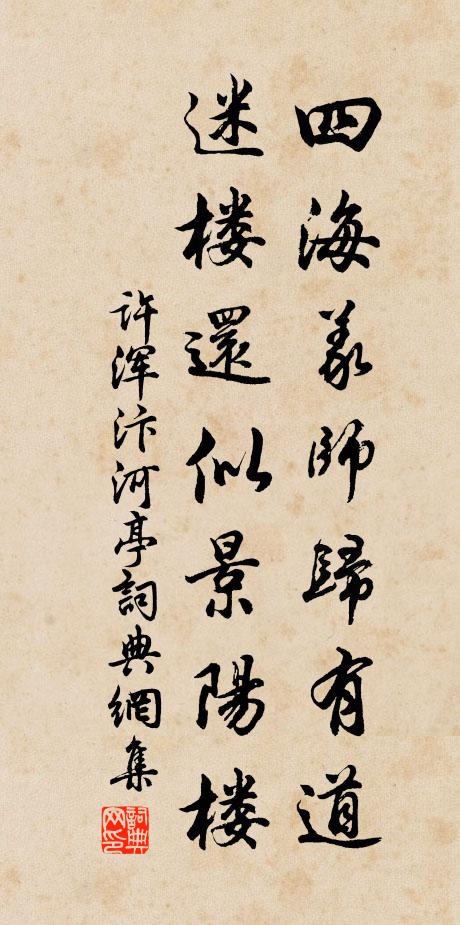 四海义師歸有道
迷楼還似景陽楼
许浑汴河亭詞典網集
詞典网印